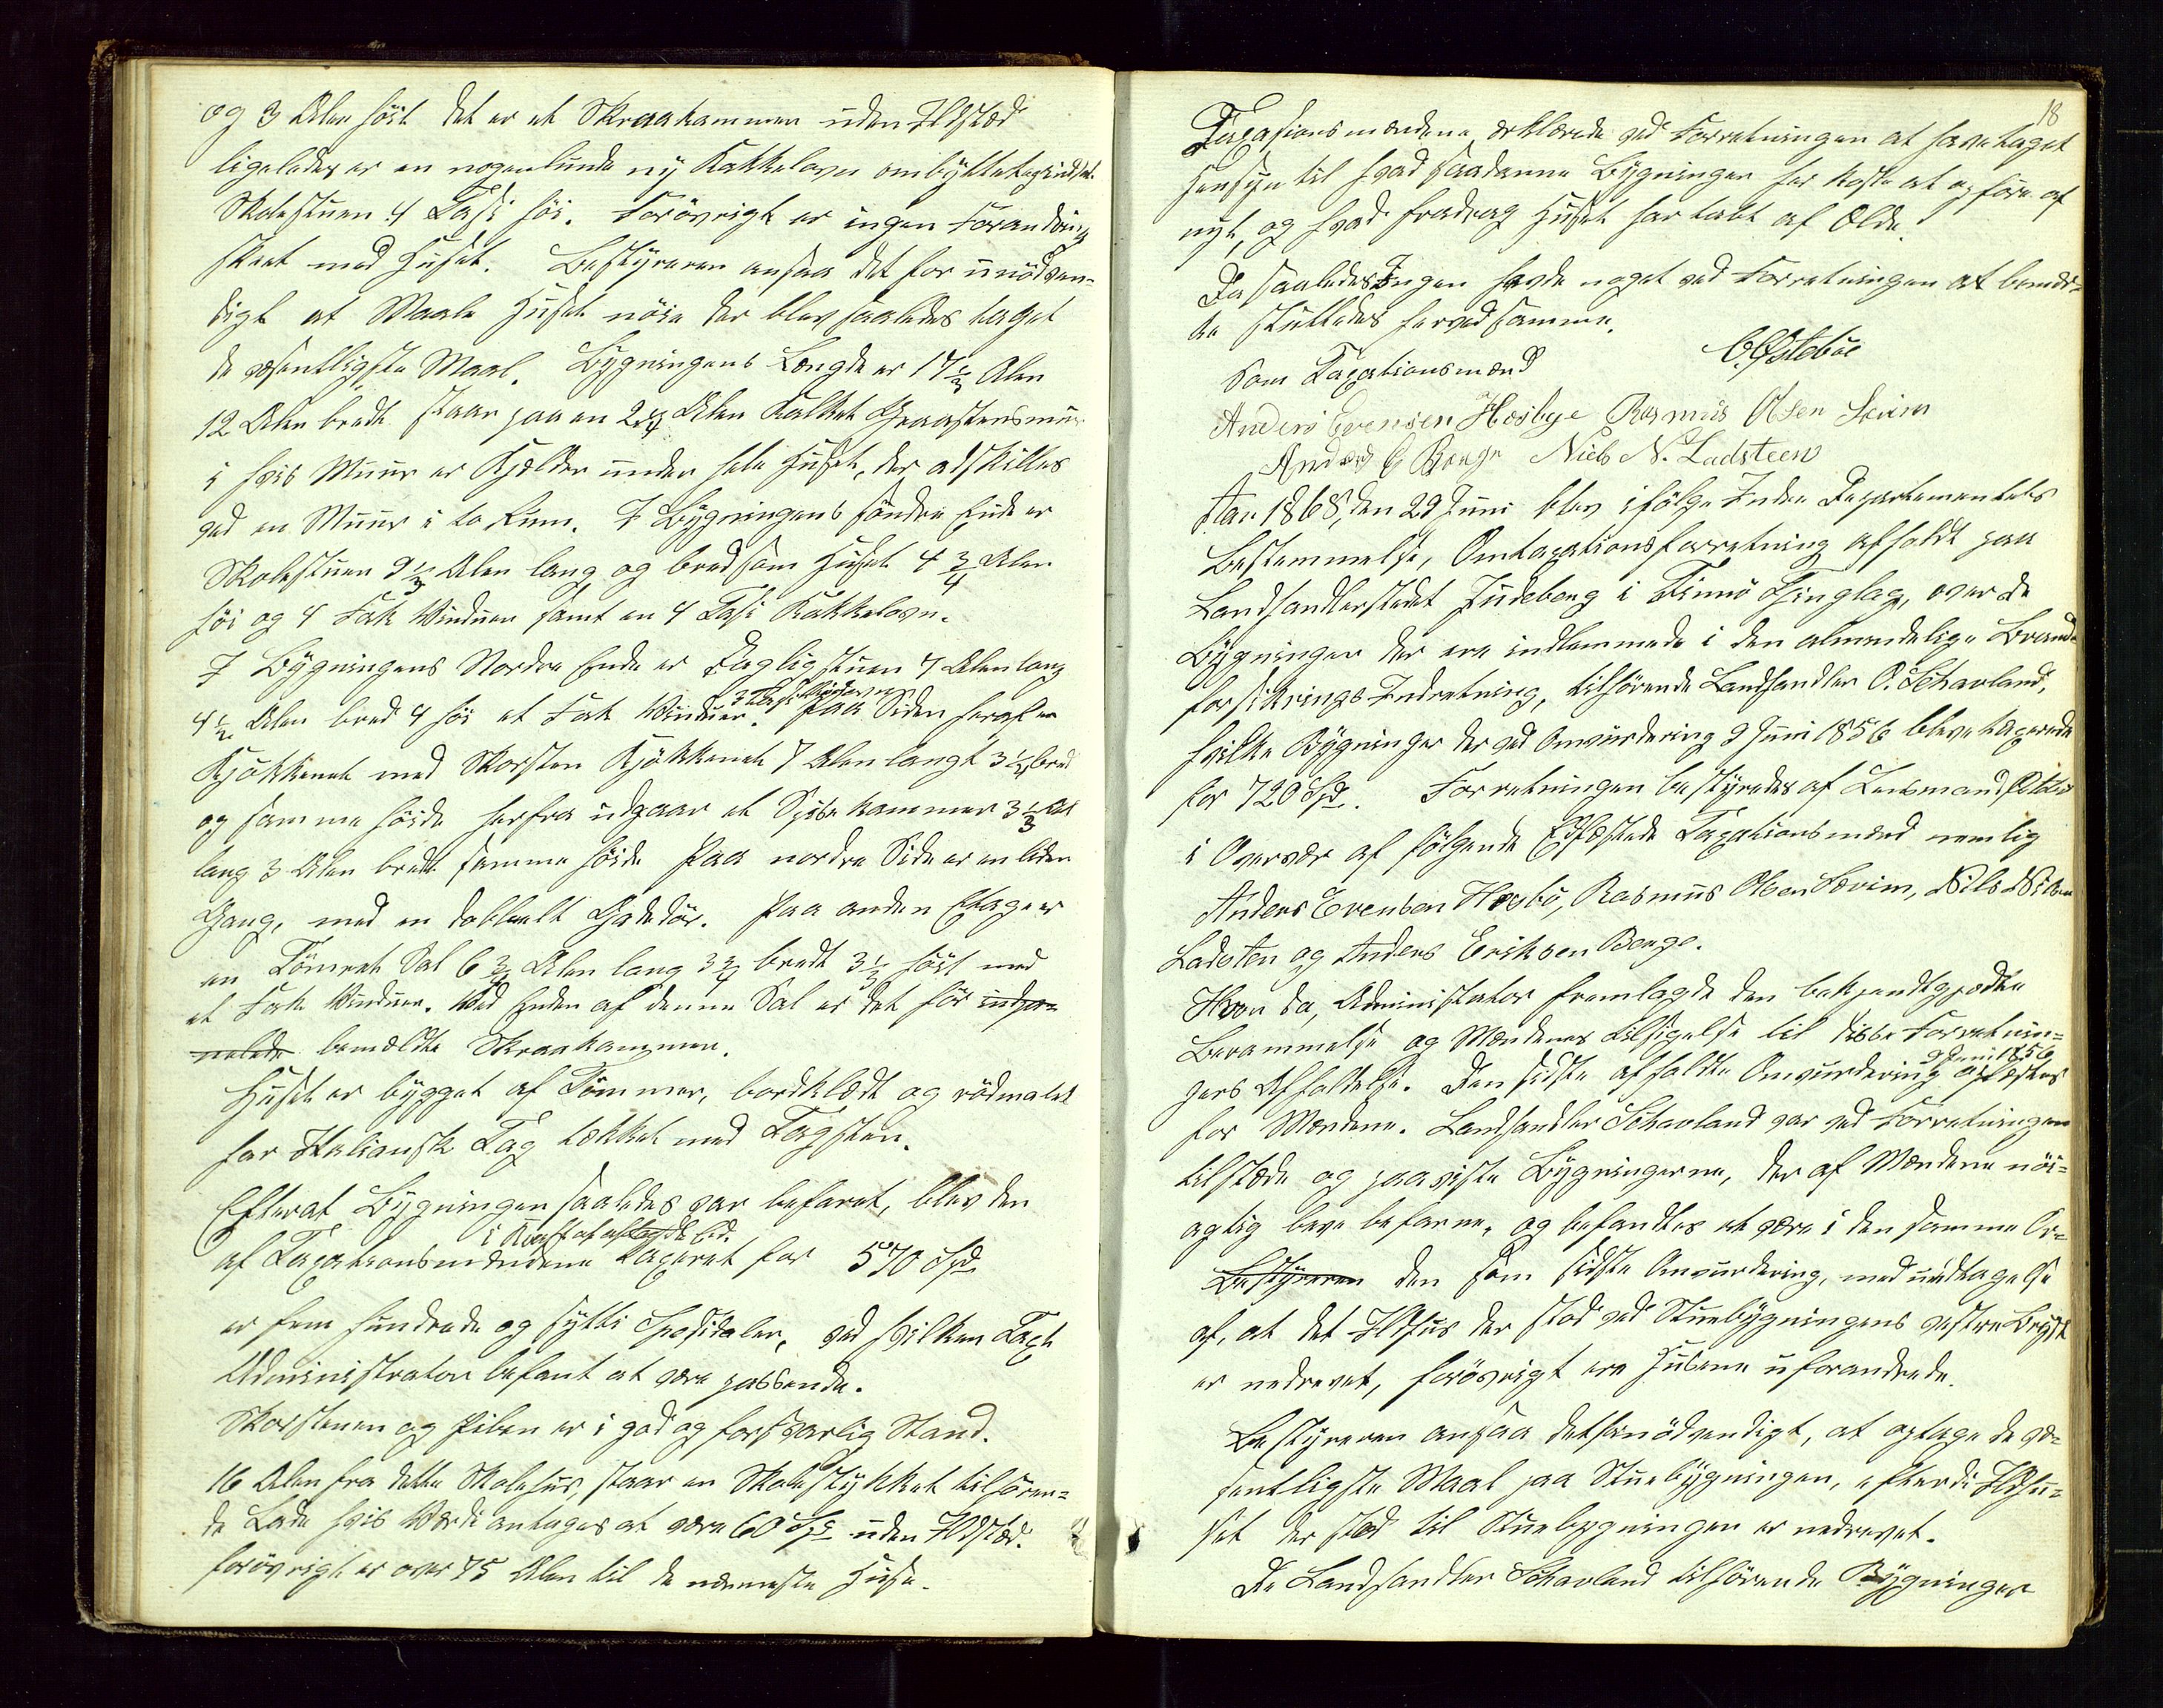 og 3 Alen höit det er et Skraakammer uden Ildsted
ligeledes er en nogenlunde ny Kakkelovn ombyttet og indsat
Skolestuen 4 Etasj höi. Forövrigt er ingen Forandring
skeet med Huset. Bestyreren ansaa det for unödven-
digt at Maale Huset nöie der blev saaledes taget
de væsentligste Maal. Bygningens Længde er 17 1/2 Alen
12 Alen bredt staar paa en 2 3/4 Alen Kalket Graastensmur
i hvis Muur er Kjelder under hele Huset, der adskilles
ved en Muur i to Rum. I Bygningens söndre Ende er
Skolestuen 9 1/3 Alen lang og bred som Huset 4 3/4 Alen
höi og 4 Fak Vinduer samt en 4 Etasj Kakkelovn.
I Bygningens Nordre Ende er Dagligstuen 7 Alen lang
4 1/2 Alen bred 4 höi et Fak Vinduer. Paa Siden heraf en
Kjökkenet med Skorsten Kjökkenet 7 Alen langt 3 1/2 bred
og samme höide herfra udgaar et Spisekammer 3 1/3 Al
lang 3 Alen bredt samme höide Paa nordre Side er en liden
Gang, med en dobbelt Gadedör. Paa anden Etage er
en Tömret Sal 6 3/4 Alen lang 3 3/4 bredt 3 1/2 höit med
et Fak Vinduer. Ved Enden af denne Sal er det för
bemeldte Skraakammer.
Huset er bygget af Tömmer, bordklædt og rödmalet
har Italiansk Tag tækket med Tagsten.
Efterat Bygningen saaledes var befaret, blev den
i Kraft af aflagde Ed.
af Taxationsmændene taxeret for 570 Spd
er fem hundrede og sytti Spesidaler, ved hvilken Taxt
Administrator befant at være passende.
Skorstenen og Piben er i god og forsvarlig Stand.
16 Alen fra dette Skolehus, staar en Skolestykket tilhören-
de Lade hvis Værdi antages at være 60 Spd uden Ildsted.
forövrigt er over 75 Alen til de nærmeste Huse.
18
Taxasionsmændene erklærede ved Forretningen at have taget
Hensyn til hvad saadanne Bygninger her koste at opföre af
nyt, og hvad fradrag Huset har tabt af Ælde.
Da saaledes Ingen havde noget ved Forretningen at bemær-
ke sluttedes herved samme.
Østeböe
Som Taxationsmænd
Anders Evensen Hæsbye Rasmus Olsen Sævim
Anders E Berge Niels N. Ladsteen
Aar 1868, den 29 Juni blev ifölge Indre Departementets
Bestemmelse, Omtaxationsforretning afholdt paa
Landhandlerstedet Judeberg i Finnö Thinglag, over de
Bygninger der ere indlemmede i den almindelige Brand-
forsikrings Indretning, tilhörende Landhandler O. Schavland,
hvilke Bygninger der ved Omvurdering 9 Juni 1856 bleve taxerede
for 720 Spd. Forretningen bestyredes af Lensmand Östebö
i Overvær af fölgende Edfæstede Taxationsmænd nemlig
Anders Evensen Hæsbö, Rasmus Olsen Sævim, Nils Nilsen
Ladsten og Anders Eriksen Berge.
Hvor da, Administrator fremlagde den bekjendtgjordte
Berammelse og Mændenes Tilsigelse til disse Forretnin-
9 Juni 1856
gers Afholdelse. Den sidste afholdte Omvurdering oplæstes
for Mændene. Landhandler Schavland var ved Forretningen
tilstede og paaviste Bygningerne, der af Mændene nöi-
agtig bleve befarne, og befandtes at være i den samme Or-
Bestyreren den som sidste Omvurdering, med undtagelse
af, at det Ildhus der stod ved Stuebygningens vestre Bryst
er nedrevet, forövrigt ere Husene uforandrede.
Bestyreren ansaa det unödvendigt, at optage de væ-
sentligste Maal paa Stuebygningen, efterdi Ildhu-
set der stod til Stuebygningen er nedrevet.
De Landhandler Schavland tilhörende Bygninger